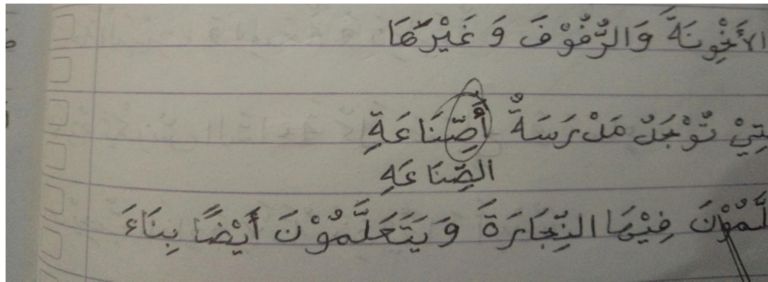 الأَخْوِنَةَ وَالرُّفُوْفَ وَ غَيْرَهَا
تِيْ تُوْجَدُ مَدْرَسَةٌ أَصِّنَاعَةِ
الصِّنَاعَةِ
لَّمُوْنَ فِيْهَا النِّجَارَةَ وَ يَتَعَلَّمُوْنَ أَيْضًا بِنَاءَ